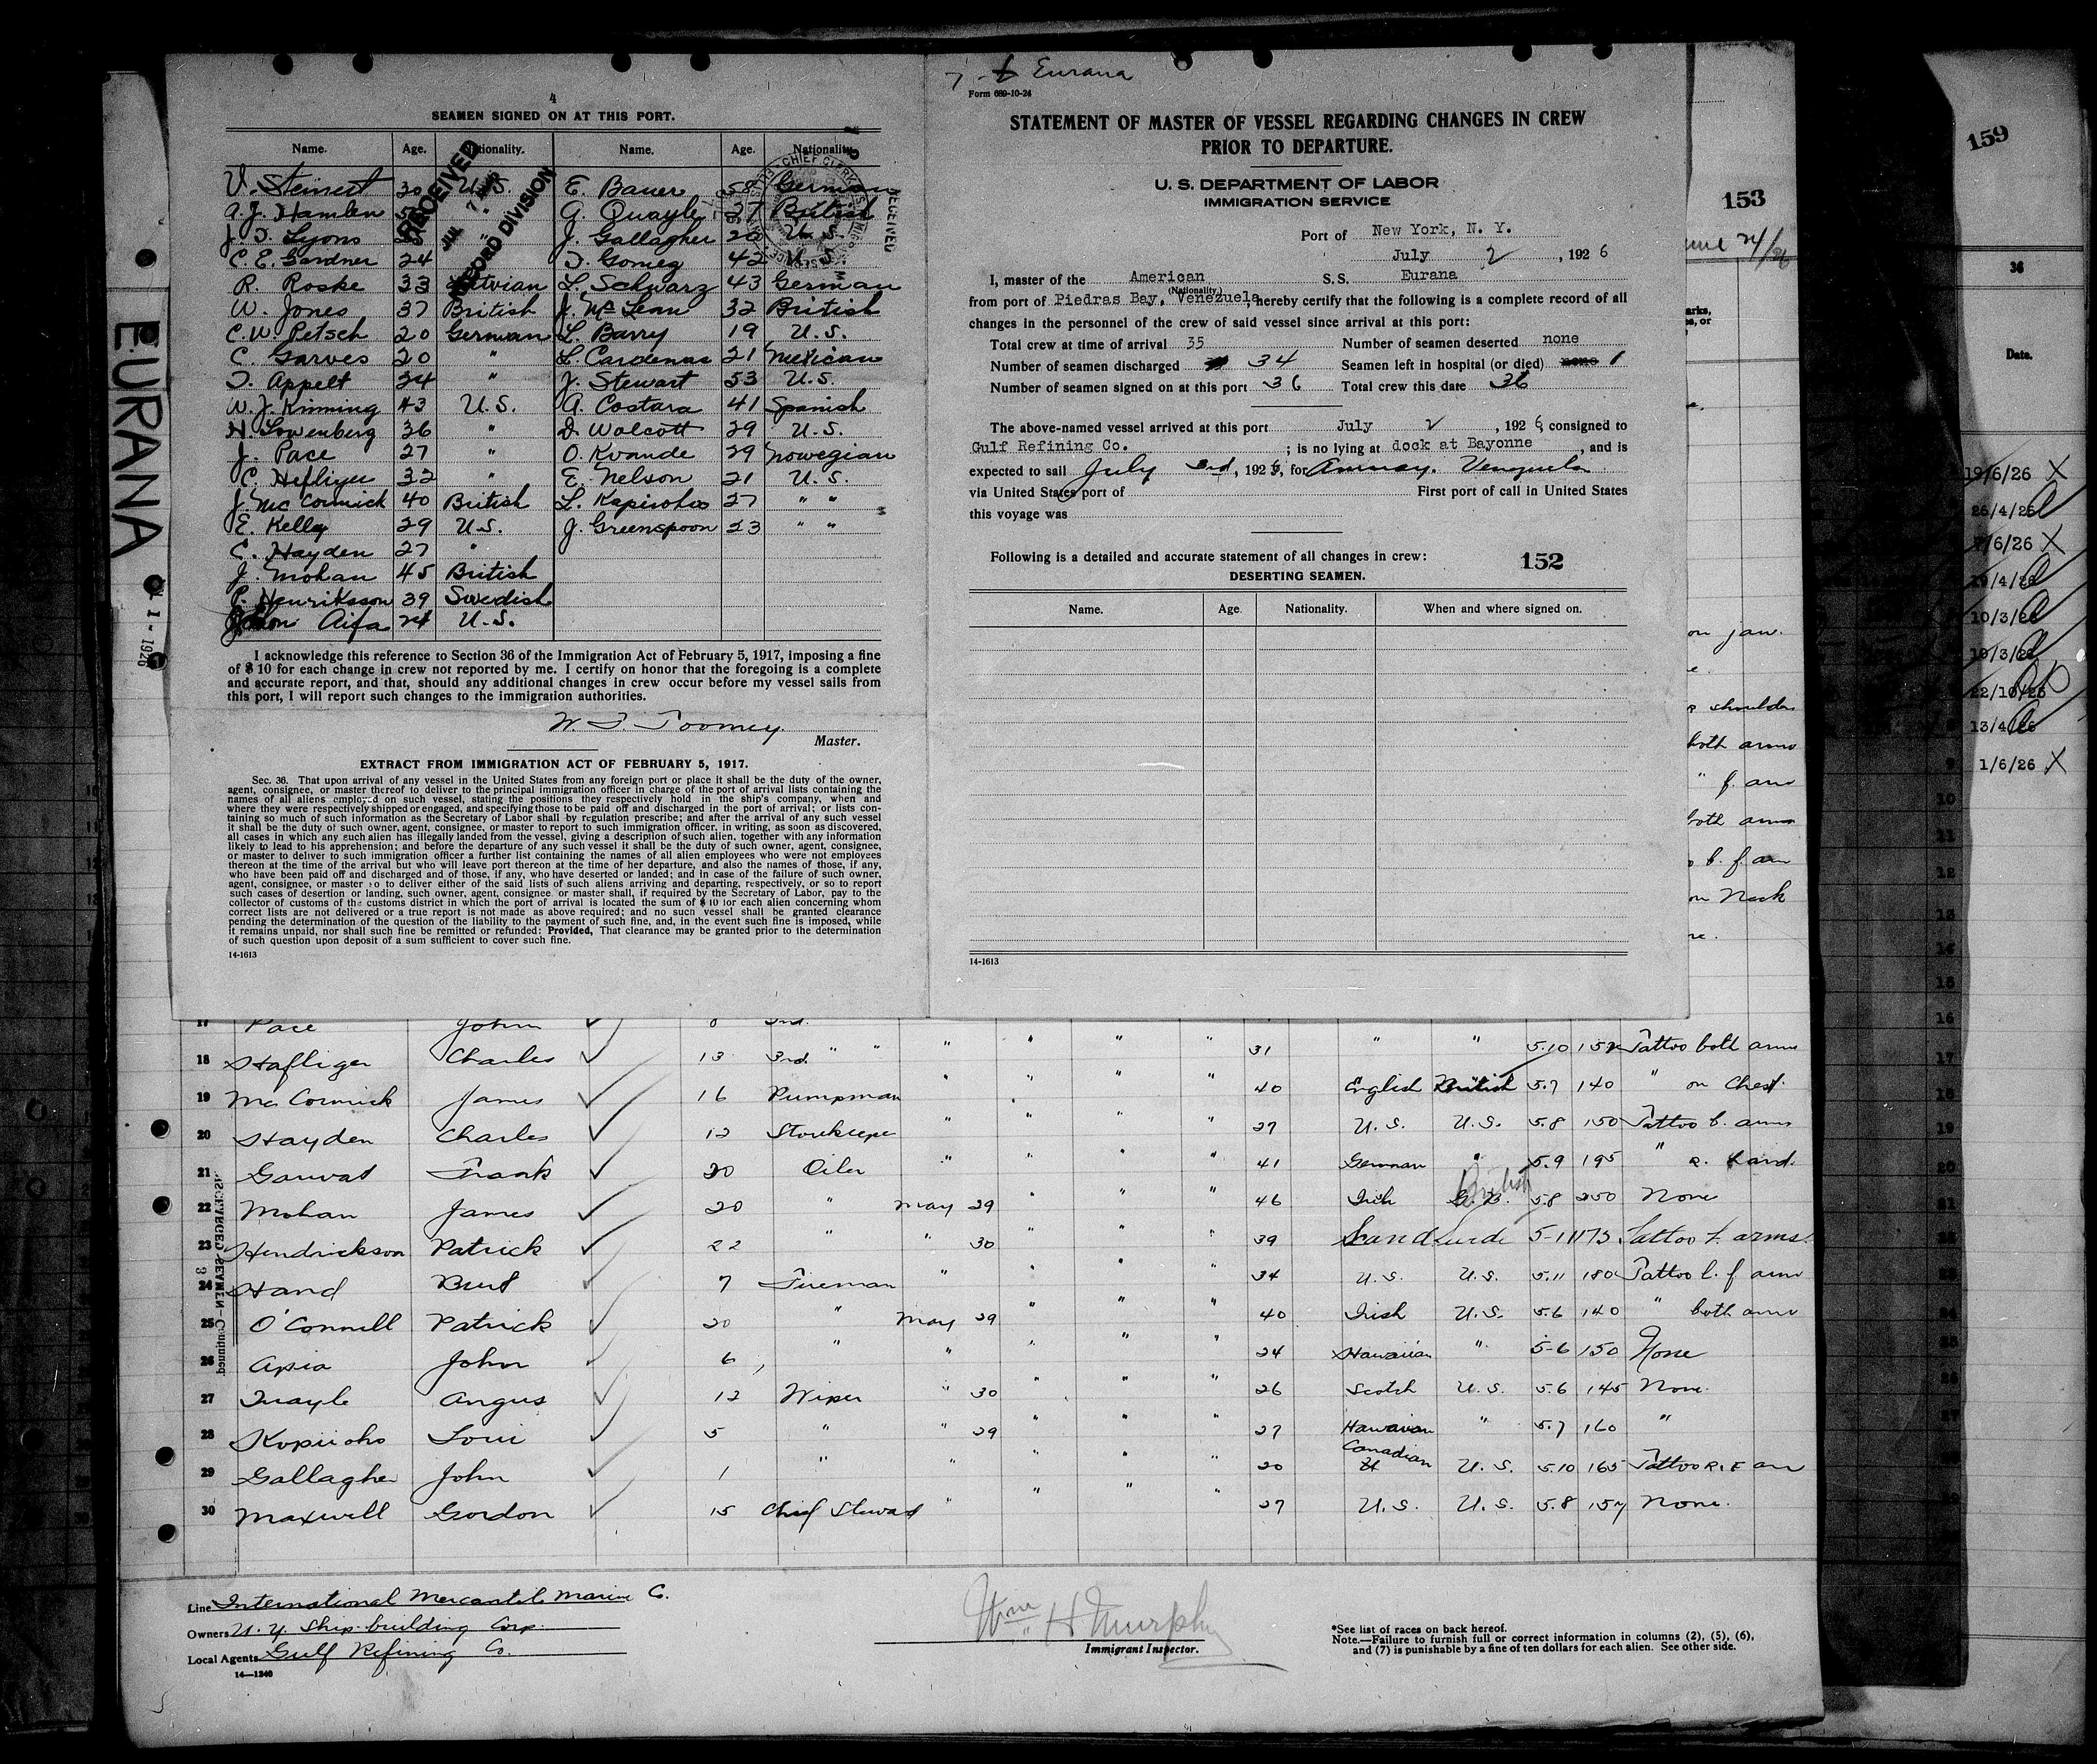 4
SEAMEN SIGNED ON AT THIS PORT.
Name. Age. Nationality. Name. Age. Nationality.
V. Steinert 30 U.S. E. Bauer 58 German
A. J. Hamlen G. Quayle 27 British
J. T. Lyons " J. Gallagher 20 U.S.
C. E. Gardner 24 T. Gomez 42 U.S.
R. Roske 33 Latvian L. Schwarz 43 German
W. Jones 37 British J. McLean 32 British
C. W. Petsch 20 German L. Barry 19 U.S.
C. Garves 20 " L. Cardenas 21 Mexican
T. Appelt 24 " J. Stewart 53 U.S.
W. J. Kinning 43 U.S. A. Costara 41 Spanish
H. Lowenberg 36 " D. Wolcott 29 U.S.
J. Pace 27 " O. Kvande 29 Nowegian
C. Hefliger 32 " E. Nelson 21 U.S.
J. McCormick 40 British L. Kapiroho 27 " "
E. Kelly 29 U.S. J. Greenspoon 23 " "
C. Hayden 27 "
J. Mohan 45 British
P. Henriksson 39 Swedish
John Aifa 24 U.S.
RECEIVED
JUL 7 AM
RECORD DIVISION
CHIEF CLERK'S
RECEIVED
I acknowledge this reference to Section 36 of the Immigration Act of February 5, 1917, imposing a fine
of $10 for each change in crew not reported by me. I certify on honor that the foregoing is a complete
and accurate report, and that, should any additional changes in crew occur before my vessel sails from
this port, I will report such changes to the immigration authorities.
W. T. Toomey
Master.
EXTRACT FROM IMMIGRATION ACT OF FEBRUARY 5, 1917.
Sec. 36. That upon arrival of any vessel in the United States from any foreign port or place it shall be the duty of the owner,
agent, consignee, or master thereof to deliver to the principal immigration officer in charge of the port of arrival lists containing the
names of all aliens employed on such vessel, stating the positions they respectively hold in the ship's company, when and
where they were respectively shipped or engaged, and specifying those to be paid off and discharged in the port of arrival; or lists con-
taining so much of such information as the Secretary of Labor shall by regulation prescribe; and after the arrival of any such vessel
it shall be the duty of such owner, agent, consignee, or master to report to such immigration officer, in writing, as soon as discovered,
all cases in which any such alien has illegally landed from the vessel, giving a description of such alien, together with any information
likely to lead to his apprehension; and before the departure of any such vessel it shall be the duty of such owner, agent, consignee,
or master to deliver to such immigration officer a further list containing the names of all alien employees who were not employees
thereon at the time of the arrival but who will leave port thereon at the time of her departure, and also the names of those, if any,
who have been paid off and discharged and of those, if any, who have deserted or landed; and in case of the failure of such owner,
agent, consignee, or master so to deliver either of the said lists of such aliens arriving and departing, respectively, or so to report
such cases of desertion or landing, such owner, agent, consignee, or master shall, if required by the Secretary of Labor, pay to the
collector of customs of the customs district in which the port of arrival is located the sum of $10 for each alien concerning whom
correct lists are not delivered or a true report is not made as above required; and no such vessel shall be granted clearance
pending the determination of the question of the liability to the payment of such fine, and, in the event such fine is imposed, while
it remains unpaid, nor shall such fine be remitted or refunded: Provided, That clearance may be granted prior to the determination
of such question upon deposit of a sum sufficient to cover such fine.
14-1613
7 Eurana
Form 689-10-24
STATEMENT OF MASTER OF VESSEL REGARDING CHANGES IN CREW
PRIOR TO DEPARTURE.
U. S. DEPARTMENT OF LABOR
IMMIGRATION SERVICE
Port of New York, N. Y.
July 2, 1926
I, master of the American S.S. Eurana
(Nationality.)
from port of Piedras Bay, Venezuela, hereby certify that the following is a complete record of all
changes in the personnel of the crew of said vessel since arrival at this port:
Total crew at time of arrival 35 Number of seamen deserted none
Number of seamen discharged 34 Seamen left in hospital (or died) none 1
Number of seamen signed on at this port 36 Total crew this date 36
The above-named vessel arrived at this port July 2, 1926, consigned to
Gulf Refining Co. ; is no lying at dock at Bayonne, and is
expected to sail July 3rd, 1926, for Amuay. Venezuela
via United States port of First port of call in United States
this voyage was
Following is a detailed and accurate statement of all changes in crew: 152
DESERTING SEAMEN.
Name. Age. Nationality. When and where signed on.
14-1613
EURANA
1 - 1926
153
159
36
Date.
19/6/26 X
26/4/26
7/6/26 X
19/4/26
10/3/26
10/3/26
22/10/26
13/4/26
9 1/6/26 X
10
11
12
13
14
15
16
17
18
19
20
21
on jaw.
shoulder
both arms
" f. arm
both arms
b. f. arm
on Neck
17 Pace John 8 2nd.
18 Hafliger Charles 13 3rd " " " " " " 31 " " 5.10 152 Tattoo both arms
19 McCormick James 16 Pumpman " " " " 40 English British 5.7 140 " on Chest.
20 Hayden Charles 12 Storekeeper " " " " 27 U.S. U.S. 5.8 150 Tattoo b. arms
21 Garvat Frank 20 Oiler " " " " 41 German " 5.9 195 " R. hand.
22 Mohan James 20 " May 29 " " " 46 Irish G.B. British 5.8 250 None
23 Hendrickson Patrick 22 " " 30 " " " 39 Scand Swede 5-11 173 Tattoo f. arms.
24 Hand Burt 7 Fireman " " " " 34 U.S. U.S. 5.11 180 Tattoo l. f. arm
25 O'Connell Patrick 20 " May 29 " " " 40 Irish U.S. 5.6 140 " both arms
26 Apia John 6 " " " " " 24 Hawaiian " 5-6 150 None
27 Quayle Angus 12 Wiper " 30 " " " 26 Scotch U.S. 5.6 145 None.
28 Kopiioho Loui 5 " " 29 " " " 27 Hawaiian " 5.7 160 "
29 Gallagher John 1 " " " " " 20 Canadian U.S. 5.10 165 Tattoo R. F arm
30 Maxwell Gordon 15 Chief Steward " " " " 27 U.S. U.S. 5.8 157 None.
DISCHARGED SEAMEN-Continued
3
Line International Mercantile Marine Co.
Owners N. Y. Ship-building Corp.
Local Agents Gulf Refining Co.
14-1240
Wm H Murphy
Immigrant Inspector.
*See list of races on back hereof.
Note.—Failure to furnish full or correct information in columns (2), (5), (6),
and (7) is punishable by a fine of ten dollars for each alien. See other side.